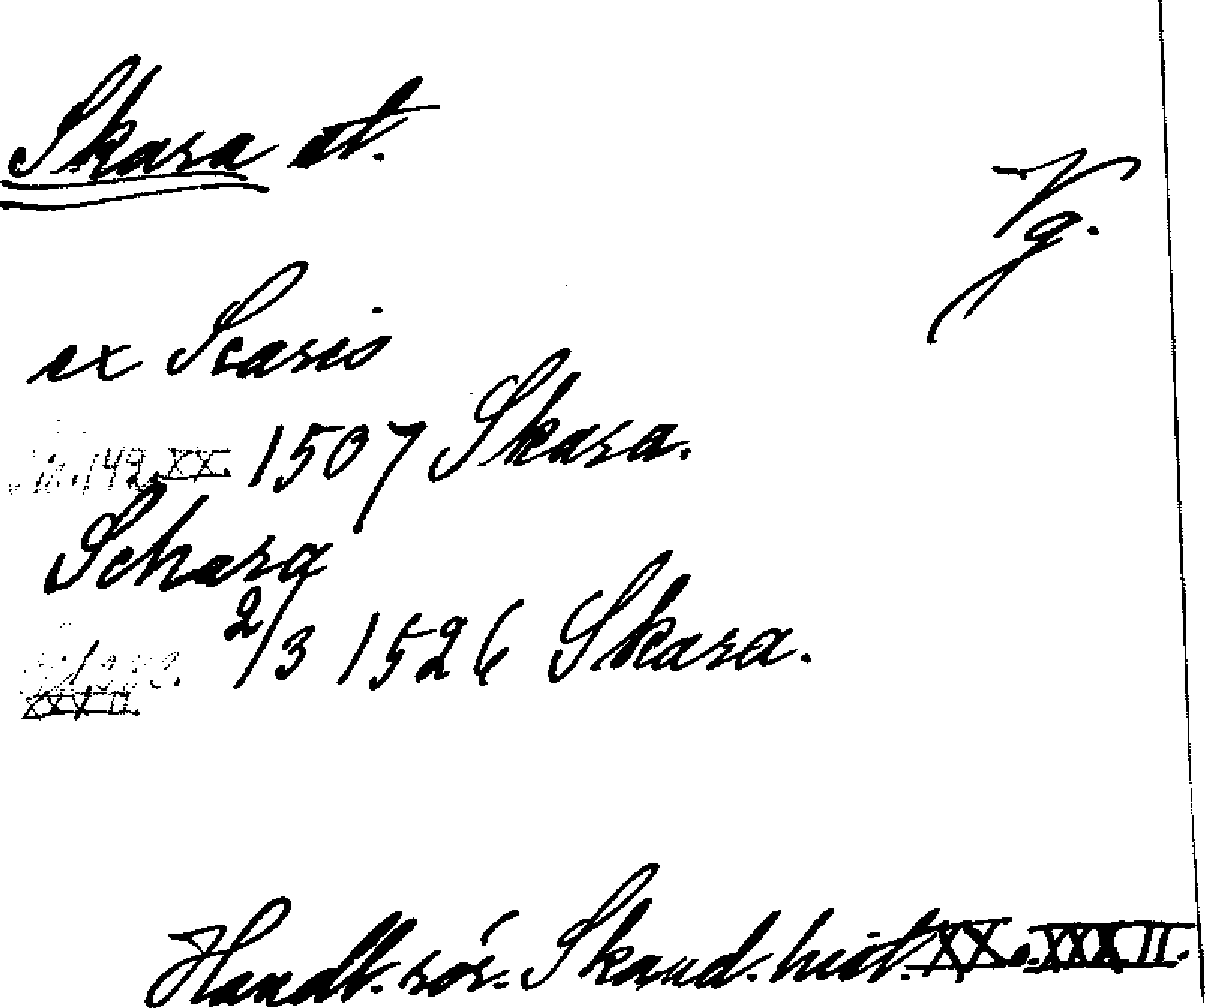 Skara st.
Vg.
ex Scaris
142 XX. 1507 Skara.
Schara
2/3 1526 Skara.
Handl. rör. Skand. hist. XX o. XXXII.